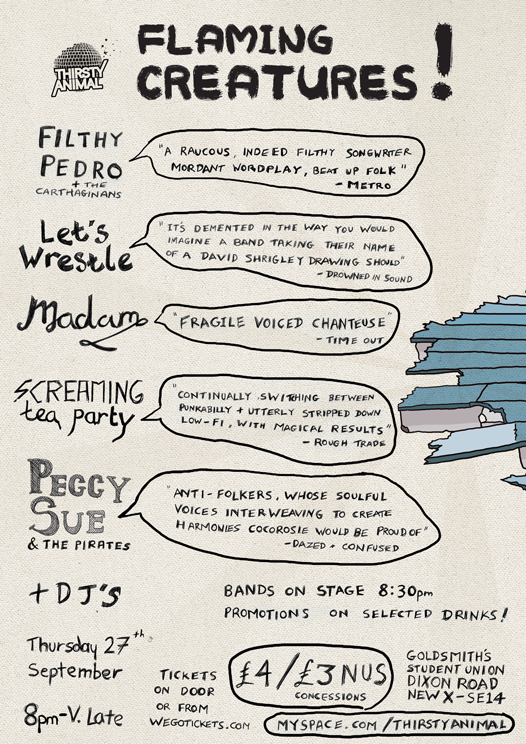 THIRSTY
ANIMAL
FLAMING
CREATURES!
FILTHY
PEDRO
+ THE
CARTHAGINANS
"A RAUCOUS, INDEED FILTHY SONGWRITER
MORDANT WORDPLAY, BEAT UP FOLK"
- METRO
Let's
Wrestle
"IT'S DEMENTED IN THE WAY YOU WOULD
IMAGINE A BAND TAKING THEIR NAME
OF A DAVID SHRIGLEY DRAWING SHOULD"
- DROWNED IN SOUND
Madam
"FRAGILE VOICED CHANTEUSE"
- TIME OUT
SCREAMING
tea party
"CONTINUALLY SWITCHING BETWEEN
PUNKABILLY + UTTERLY STRIPPED DOWN
LOW-FI, WITH MAGICAL RESULTS"
- ROUGH TRADE
PEGGY
SUE
& THE PIRATES
"ANTI-FOLKERS, WHOSE SOULFUL
VOICES INTERWEAVING TO CREATE
HARMONIES COCOROSIE WOULD BE PROUD OF"
- DAZED + CONFUSED
+ DJ'S
BANDS ON STAGE 8:30pm
PROMOTIONS ON SELECTED DRINKS!
Thursday 27th
September
8pm-V. Late
TICKETS
ON DOOR
OR FROM
WEGOTICKETS.COM
£4/£3 NUS
CONCESSIONS
GOLDSMITH'S
STUDENT UNION
DIXON ROAD
NEW X-SE14
MYSPACE.COM/THIRSTYANIMAL